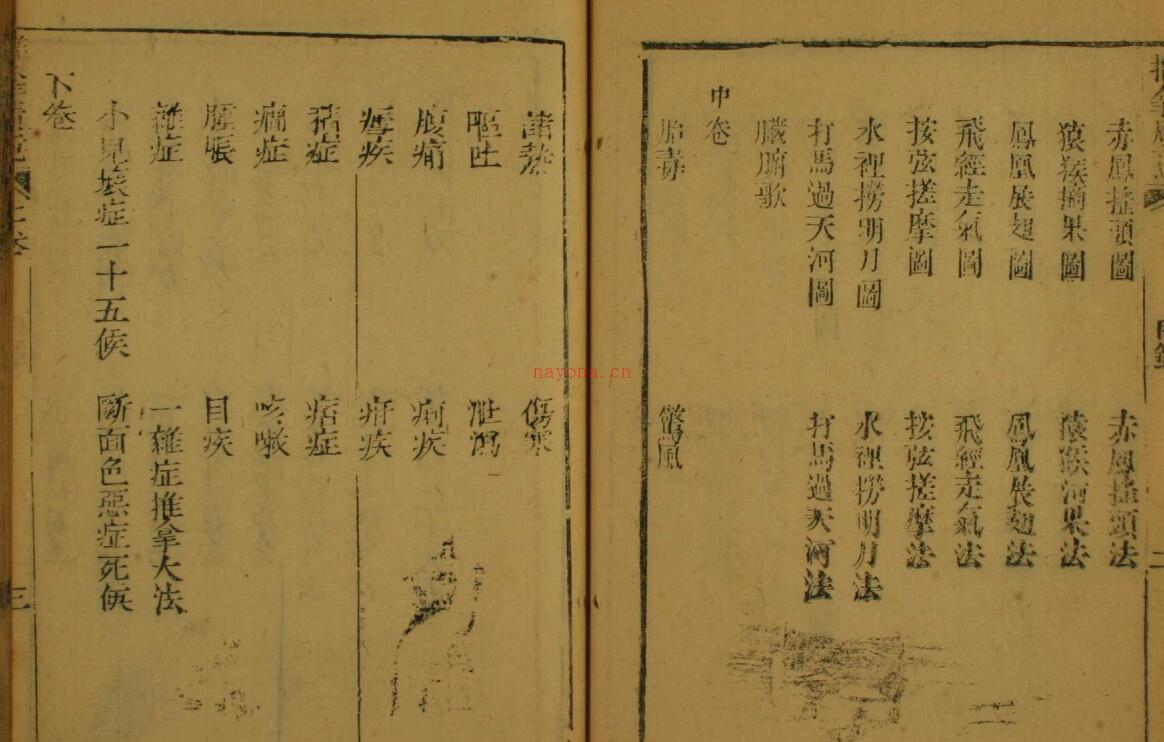 赤鳳搖頭圖　赤鳳搖頭法
猿猴摘果圖　猿猴河果法
鳳凰展翅圖　鳳凰展翅法
飛經走氣圖　飛經走氣法
按弦搓摩圖　按弦搓摩法
水裡撈明月圖　水裡撈明月法
打馬過天河圖　打馬過天河法
臟腑歌
中卷
胎毒　驚風
諸熱　傷寒
嘔吐　泄瀉
腹痛　痢疾
瘧疾　疳疾
積症　痞症
癎症　咳嗽
腫脹　目疾
雜症　一雜症推拿大法
小兒壞症一十五候　斷面色惡症死候
下卷
三
nayona.cn